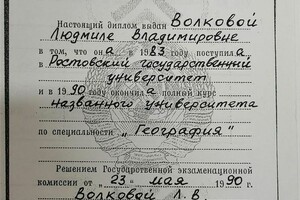 Настоящий диплом выдан Волковой
Людмиле Владимировне
в том, что она в 1983 году поступила
в Ростовский государственный
университет
и в 1990 году окончила полный курс
названного университета
по специальности „География“
Решением Государственной экзаменационной
комиссии от „ 23 “ мая 1990 г.
Волковой Л. В.